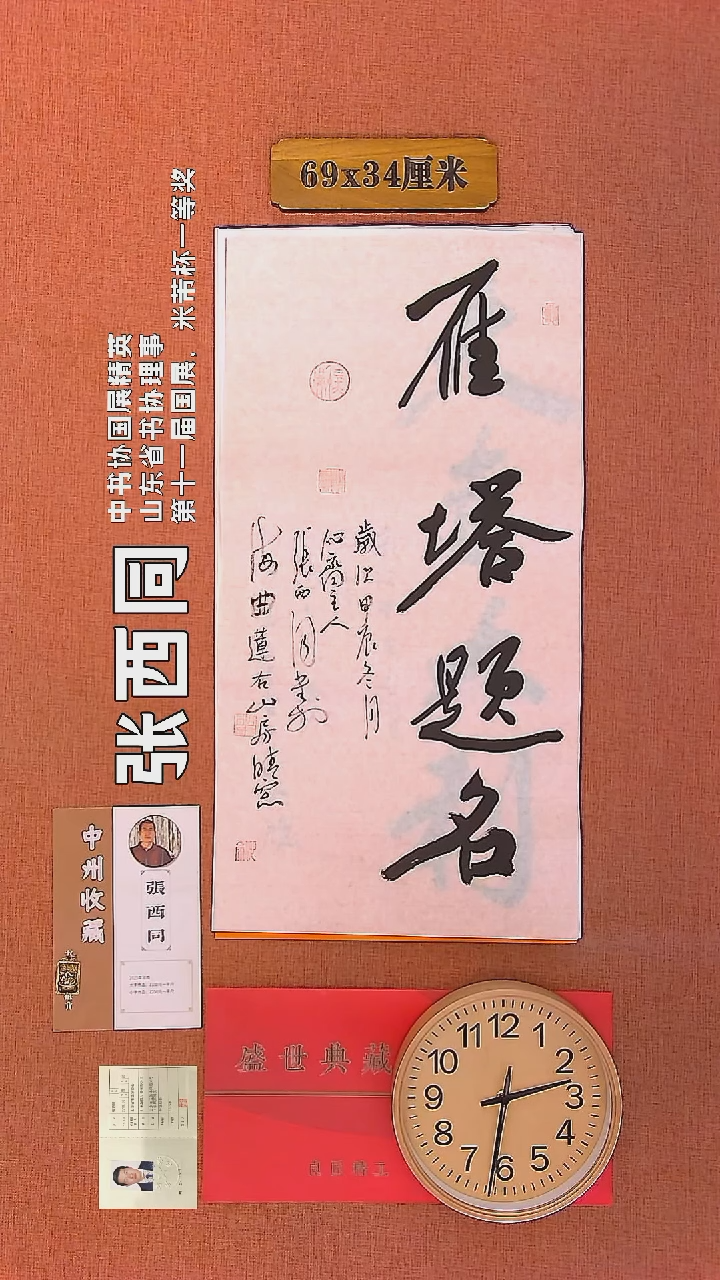 69x34厘米
雁塔题名
歲次甲辰冬月
心齋主人
張西同書於
海曲蘆右山房晴窓
中书协国展精英
山东省书协理事
第十一届国展、米芾杯一等奖
张西同
中洲收藏
張西同
盛世典藏
12
1
2
3
4
5
6
7
8
9
10
11